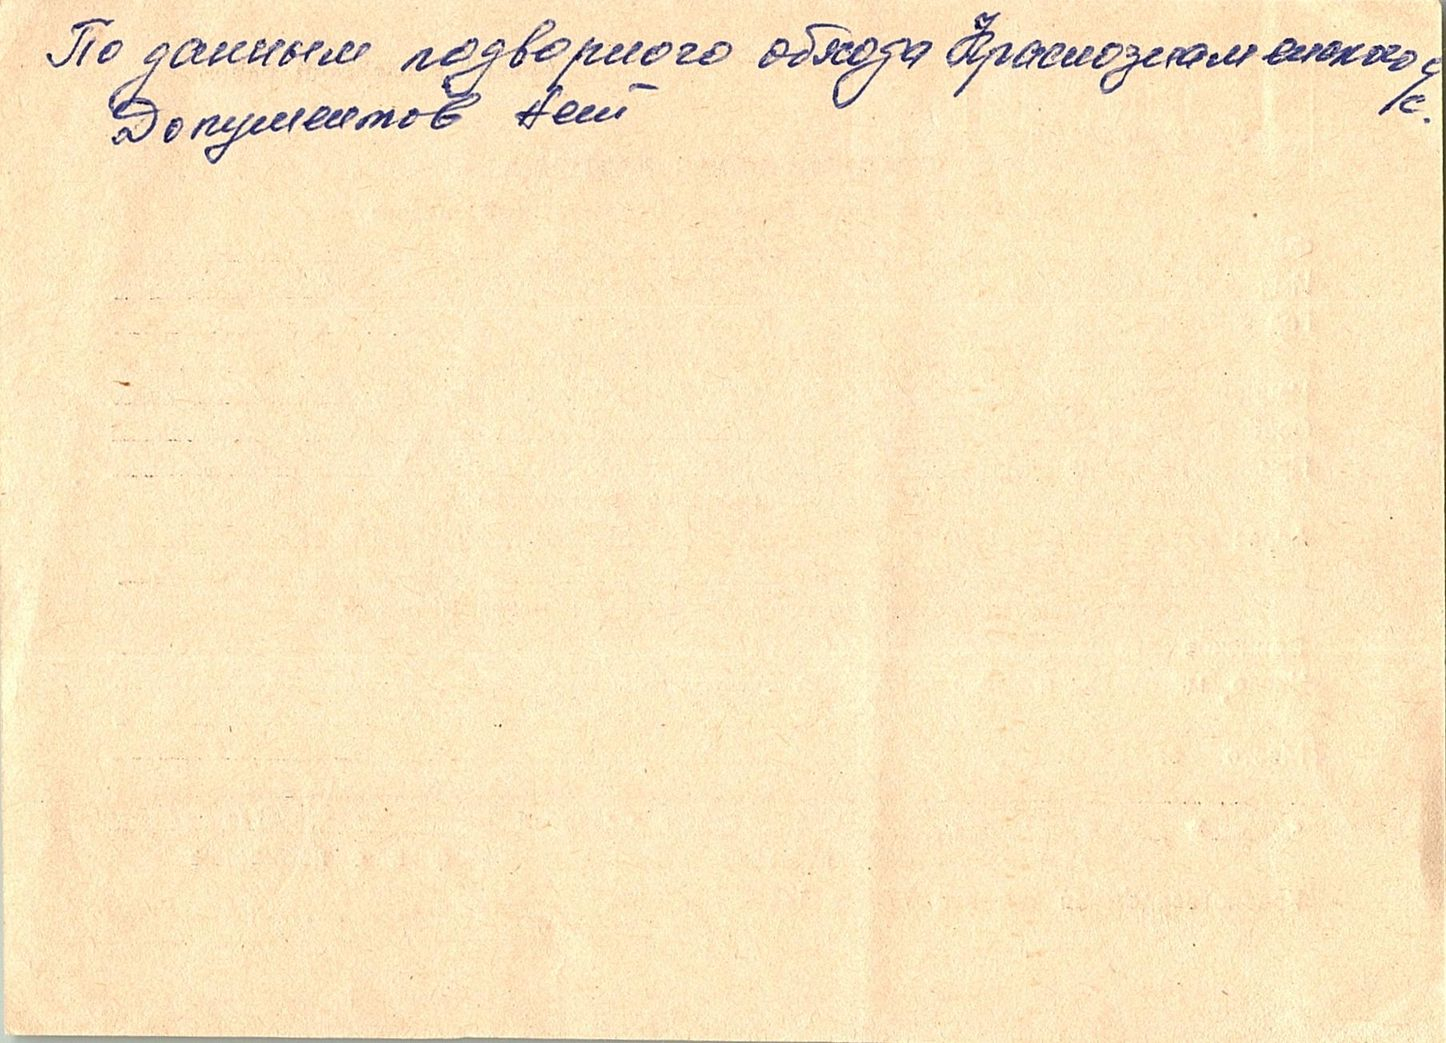 По данным подворного обхода Краснознаменского с/с.
Документов нет